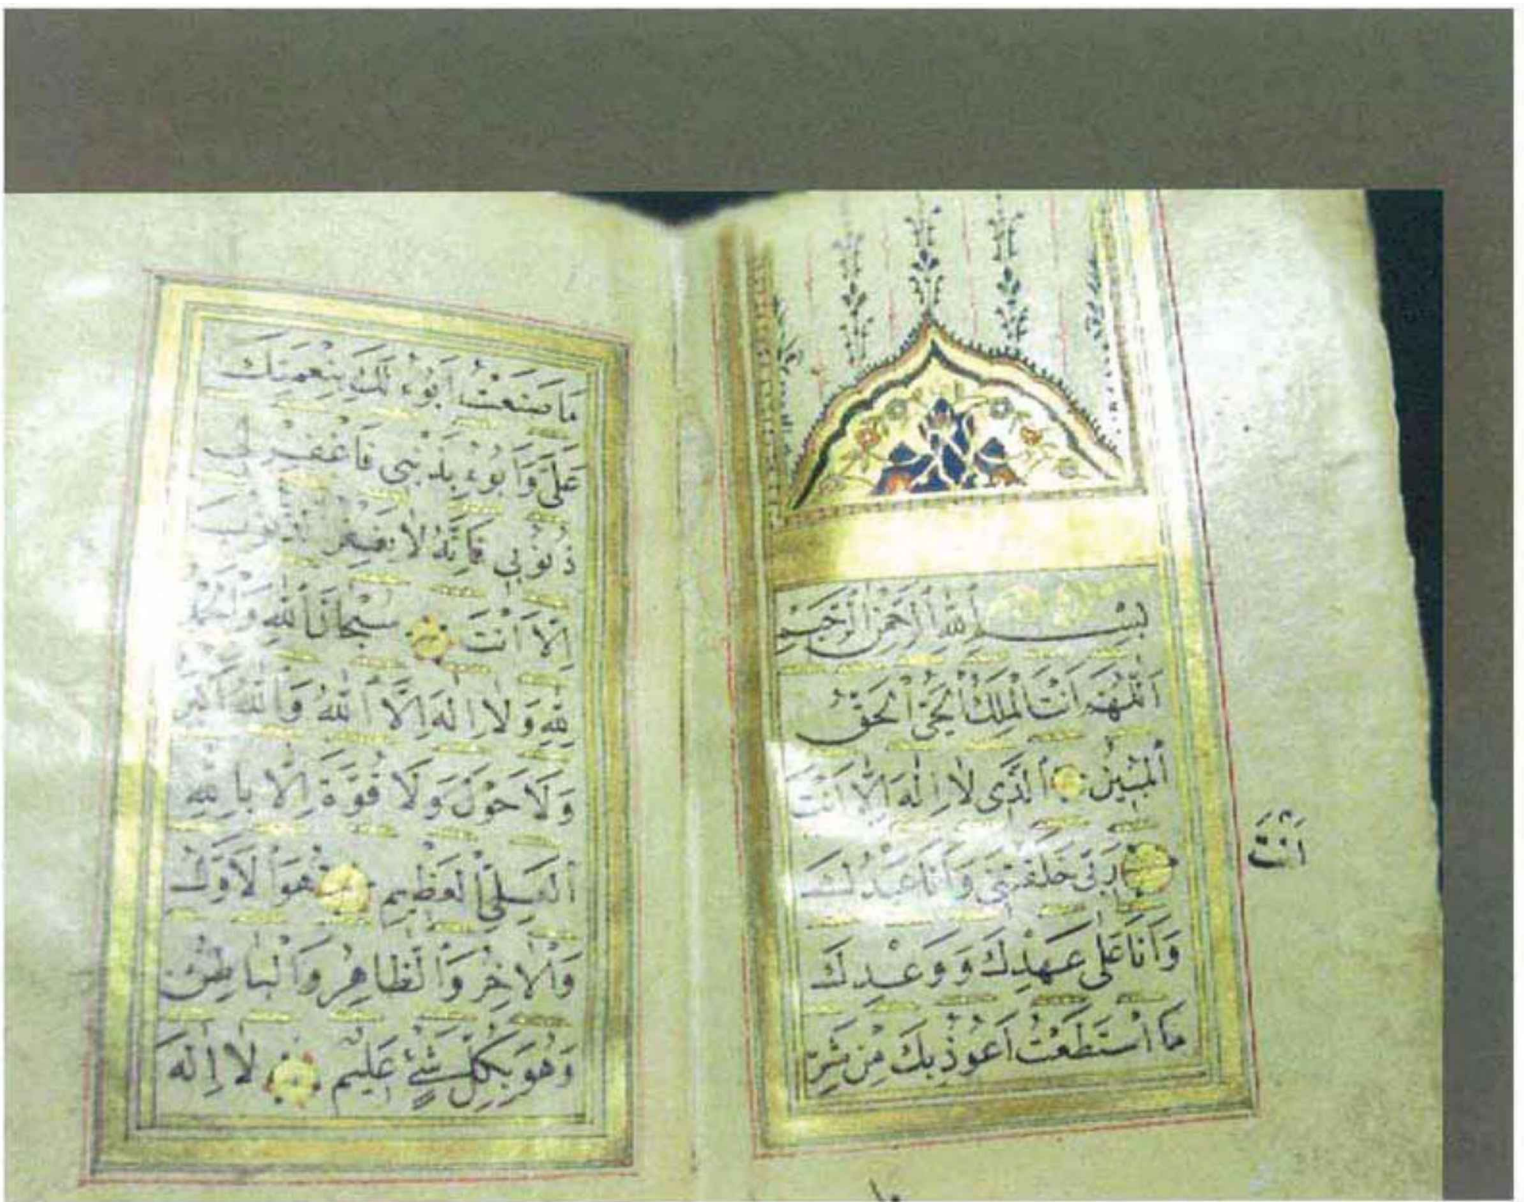 بِسْمِ اللّٰهِ الرَّحْمٰنِ الرَّحِيمِ
اَللّٰهُمَّ اَنْتَ الْمَلِكُ الْحَىُّ الْحَقُّ
الْمُبِينُ اَلَّذِى لَا اِلٰهَ اِلَّا اَنْتَ
رَبِّى خَلَقْتَنِى وَاَنَا عَبْدُكَ
اَنْتَ
وَاَنَا عَلٰى عَهْدِكَ وَوَعْدِكَ
مَا اسْتَطَعْتُ اَعُوذُ بِكَ مِنْ شَرِّ
مَا صَنَعْتُ اَبُوءُ لَكَ بِنِعْمَتِكَ
عَلَىَّ وَاَبُوءُ بِذَنْبِى فَاغْفِرْ لِى
ذُنُوبِى فَاِنَّهُ لَا يَغْفِرُ الذُّنُوبَ
اِلَّا اَنْتَ سُبْحَانَ اللّٰهِ وَالْحَمْدُ
لِلّٰهِ وَلَا اِلٰهَ اِلَّا اللّٰهُ وَاللّٰهُ اَكْبَرُ
وَلَا حَوْلَ وَلَا قُوَّةَ اِلَّا بِاللّٰهِ
الْعَلِىِّ الْعَظِيمِ هُوَ الْاَوَّلُ
وَالْاٰخِرُ وَالظَّاهِرُ وَالْبَاطِنُ
وَهُوَ بِكُلِّ شَىْءٍ عَلِيمٌ لَا اِلٰهَ